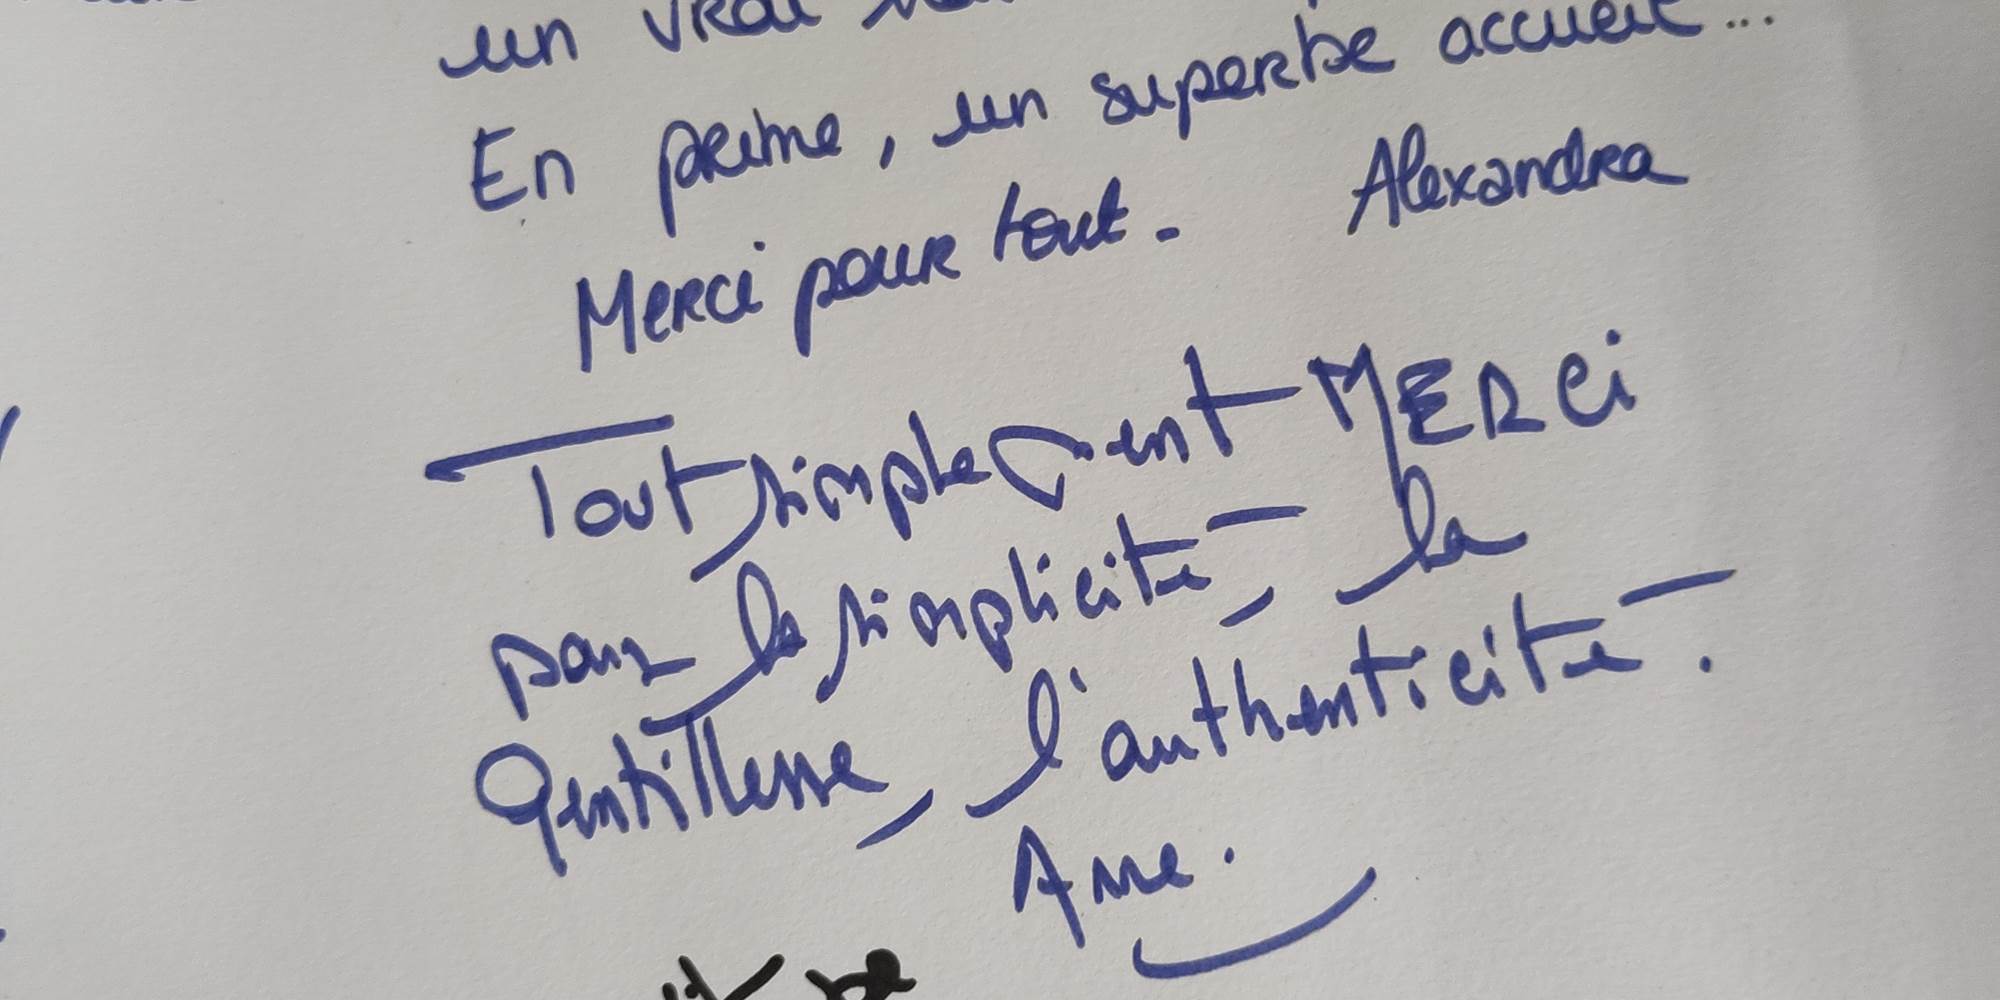 un vrai
En prime, un superbe accueil...
Merci pour tout. Alexandra
Tout simplement MERCi
pour la simplicité, la
Gentillesse, l'authenticité.
Anne.